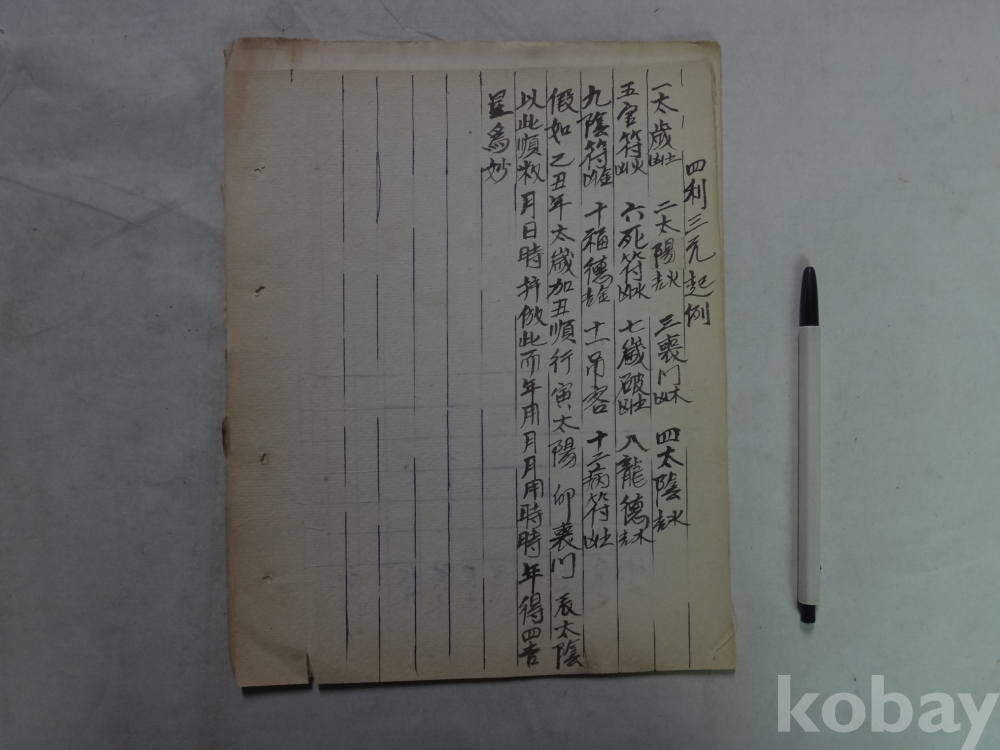 四利三元起例
一太歲凶土 二太陽吉火 三喪門凶木 四太陰吉水
五官符凶火 六死符凶水 七歲破凶土 八龍德吉木
九陰符凶金 十福德吉金 十一吊客 十二病符凶土
假如乙丑年太歲加丑順行寅、太陽 卯喪門 辰太陰
以此順数月日時并倣此而年用月月用時時年得四吉
星爲妙
kobay